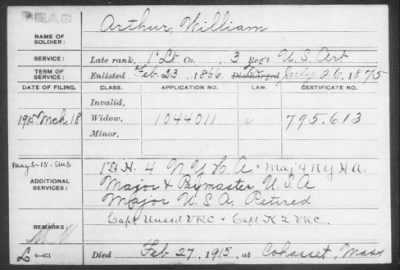 DEAD
Arthur, William
NAME OF SOLDIER:
SERVICE: Late rank, 1" Lt Co. , 3 Reg't U.S. Art
TERM OF SERVICE: Enlisted Feb. 23, 1866. Discharged July 26, 1875
DATE OF FILING. CLASS. APPLICATION NO. LAW. CERTIFICATE NO.
Invalid,
1915 Mch 18 Widow, 1044011 795.613
Minor,
ADDITIONAL SERVICES: 1st Lt. 4 N Y H A & Maj 4 N Y H A.
Major & Paymaster U.S.A
Major U.S.A. Retired
REMARKS: Capt Unasd VRC & Capt K 2 VRC.
Died Feb 27, 1915, at Cohasset, Mass